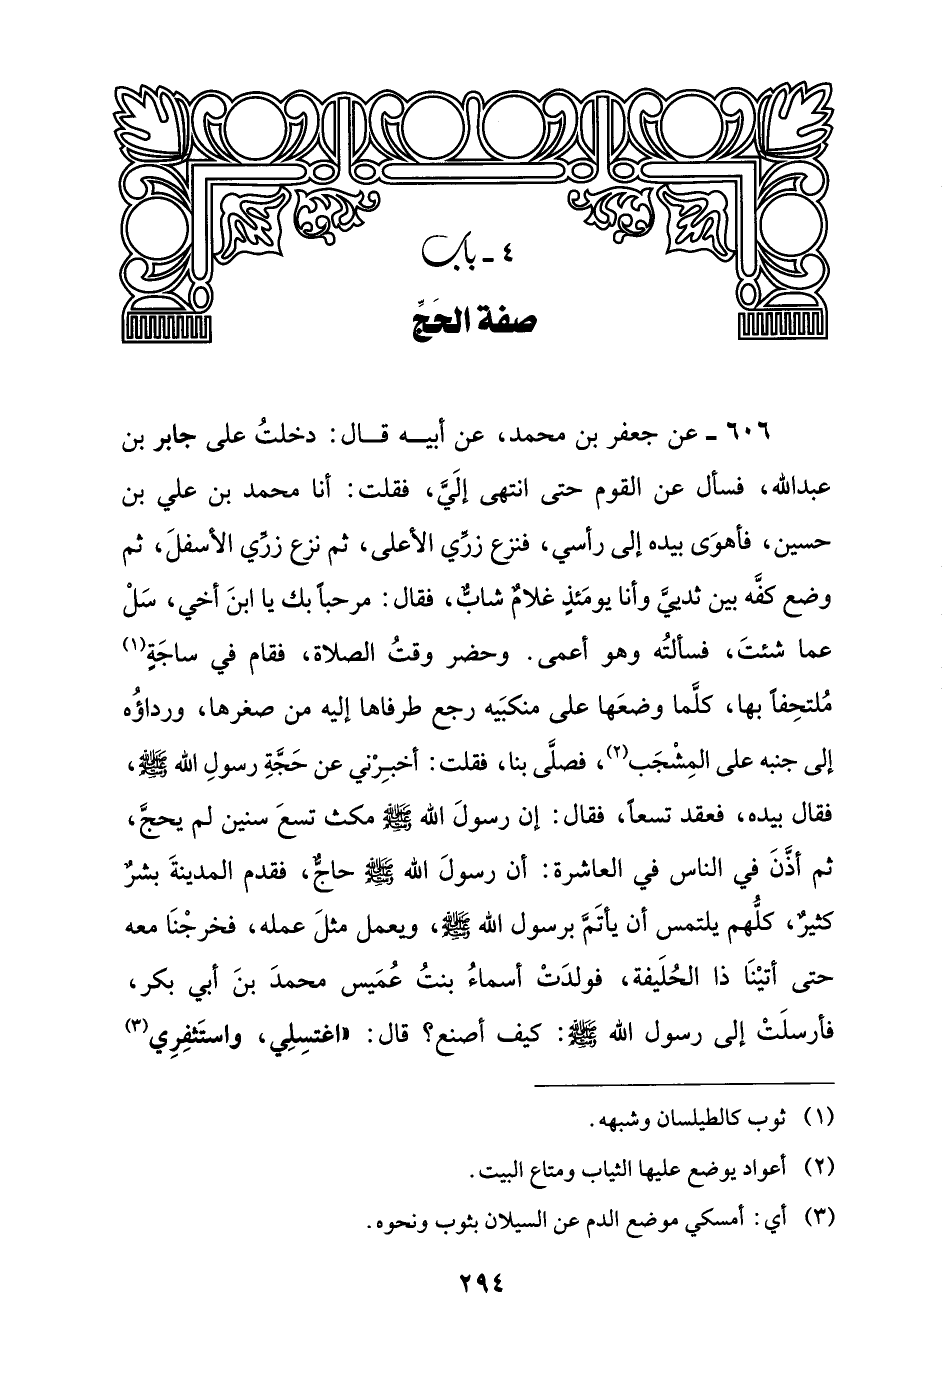 ٤ - باب
صفة الحَجِّ
٦٠٦ ـ عن جعفر بن محمد، عن أبيـه قـال: دخلتُ على جابر بن
عبدالله، فسأل عن القوم حتى انتهى إلَيَّ، فقلت: أنا محمد بن علي بن
حسين، فأهوَى بيده إلى رأسي، فنزع زرِّي الأعلى، ثم نزع زرِّي الأسفلَ، ثم
وضع كفَّه بين ثدييَّ وأنا يومَئذٍ غلامٌ شابٌّ، فقال: مرحباً بك يا ابنَ أخي، سَلْ
عما شئتَ، فسألتُه وهو أعمى. وحضر وقتُ الصلاة، فقام في ساجَةٍ(١)
مُلتحِفاً بها، كلَّما وضعَها على منكبَيه رجع طرفاها إليه من صغرها، ورداؤُه
إلى جنبه على المِشْجَب(٢)، فصلَّى بنا، فقلت: أخبِرْني عن حَجَّةِ رسولِ الله ﷺ،
فقال بيده، فعقد تسعاً، فقال: إن رسولَ الله ﷺ مكث تسعَ سنين لم يحجَّ،
ثم أذَّنَ في الناس في العاشرة: أن رسولَ الله ﷺ حاجٌّ، فقدم المدينةَ بشرٌ
كثيرٌ، كلُّهم يلتمس أن يأتَمَّ برسول الله ﷺ، ويعمل مثلَ عمله، فخرجْنَا معه
حتى أتيْنَا ذا الحُلَيفة، فولدَتْ أسماءُ بنتُ عُمَيس محمدَ بنَ أبي بكر،
فأرسلَتْ إلى رسول الله ﷺ: كيف أصنع؟ قال: «اغتسِلِي، واستَثفِرِي(٣)
(١) ثوب كالطيلسان وشبهه.
(٢) أعواد يوضع عليها الثياب ومتاع البيت.
(٣) أي: أمسكي موضع الدم عن السيلان بثوب ونحوه.
٢٩٤